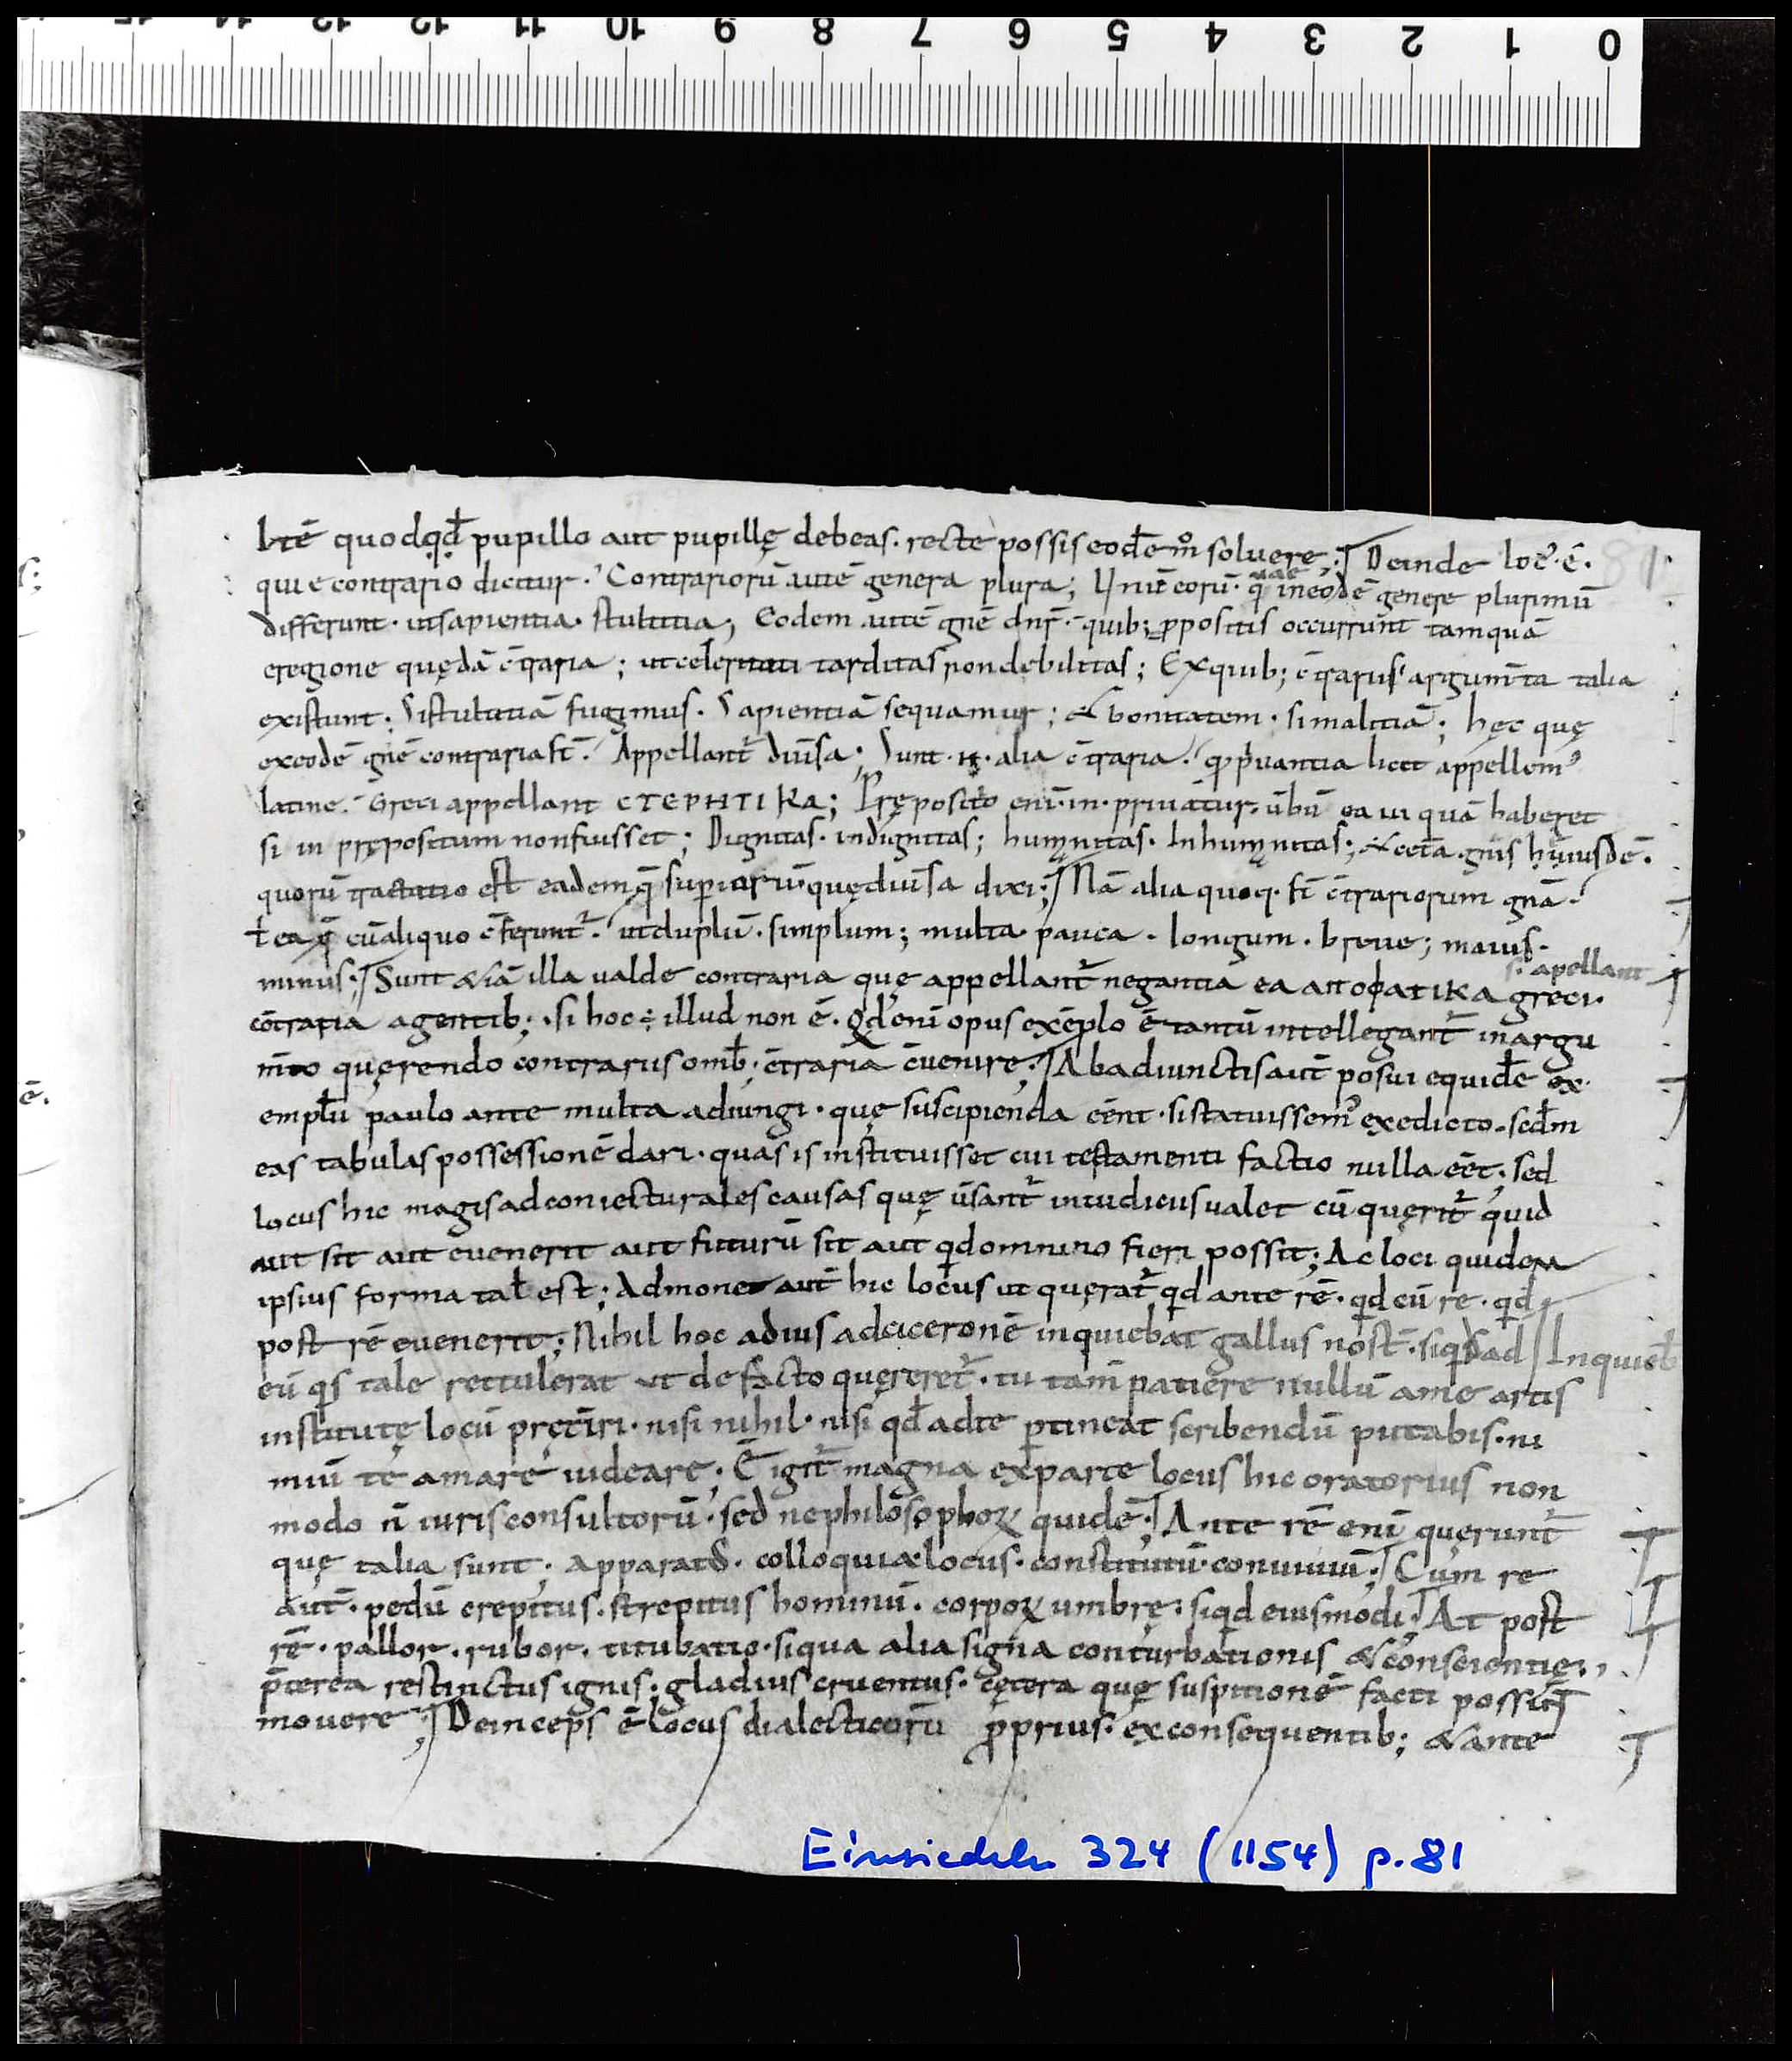 15 14 13 12 12 11 10 9 8 7 6 5 4 3 2 1 0
Itē quodqd̄ pupillo aut pupillę debeas. recte possis eodē m̊ soluere; Deinde loc' ē. 81
qui e contrario dicitur. Contrariorū autē genera plura; Unū eorū. q̄ quae in eodē genere plurimū
differunt. ut sapientia. stultitia; Eodem autē gn̄e dnr̄. quib; ppositis occurrunt tamquā
eregione quędā c̄traria; ut celeritati tarditas non debilitas; Ex quib; c̄trariis argum̄ta talia
existunt. Si stultitiā fugimus. Sapientiā sequamur; & bonitatem. si malitiā; hęc quę
ex eodē gn̄e contraria st̄. Appellant̄ diu̅sa; Sunt. n̄. alia c̄traria. q̄ p'uantia licet appellem'
latine. Greci appellant CTEPHTIKA; Pręposito eni. in. priuatur. ūbū ea ui quā haberet
si in prępositum non fuisset; Dignitas. indignitas; humanitas. Inhumanitas; & cet̄a. gn̄is huiusdē.
quorū tractatio est eadem q̄ superiorū. quę diu̅sa dixi; Nā alia quoq. st̄ c̄trariorum gn̄a.
t̄ ea q̄ cū aliquo c̄ferunt̄. ut duplū. simplum; multa. pauca. longum. breue; maius.
minus; Sunt & iā illa ualde contraria que appellant̄ negantia ea aποφατικα greci. s. apellant
cōtraria agentib; si hoc ÷ illud non ē. Qd' enī opus exēplo ē tantū intellegant̄ in argu
m̄to quęrendo contrariis omb̄; c̄traria c̄uenire; Ab adiunctis aut̄ posui equidē ex
emplū paulo ante multa adiungi. quę suscipienda eēnt. si statuissem' ex edicto. scd̄m
eas tabulas possessionē dari. quas is instituisset cui testamenti factio nulla eēt. sed
locus hic magis ad coniecturales causas quę ūsant̄ in iudiciis ualet cū quęrit̄ quid
aut sit aut euenerit aut futurū sit aut qd omnino fieri possit; Ac loci quidem
ipsius forma tal̄ est; Admonet aut̄ hic locus ut quęrat̄ qd ante rē. qd cū re. qd
post rē euenerit; Nihil hoc ad ius ad ciceronē inquiebat gallus nost̄. siqd ad Inquieb̄
eū qs tale rettulerat ut de facto quęreret̄. tu tam̄ patiere nullū a me artis
institutę locū pręt̄iri. nisi nihil. nisi qd̄ ad te ptineat scribendū putabis. ni
miū te amare uideare. Ē igit̄ magna ex parte locus hic oratorius non
modo n̄ iuris consultorū. sed ne philosophoꝝ quidē; Ante rē enī quęrunt̄
quę talia sunt. apparatus. colloquia. locus. constitutū. conuiuiū; Cum re
aut̄. pedū crepitus. strepitus hominū. corpoꝝ umbrę. siqd eiusmodi; At post
rē. pallor. rubor. titubatio. siqua alia signa conturbationis & conscientię.
p̄terea restinctus ignis. gladius cruentus. cętera quę suspitionē facti possint̄
mouere; Deinceps ē locus dialecticorū pprius. ex consequentib; & ante
Einsiedeln 324 (1154) p. 81